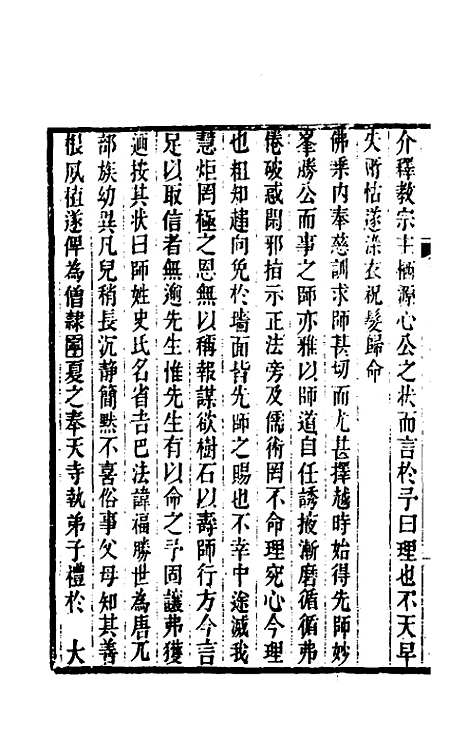 介釋教宗主栖源心公之狀而言於予曰理也不天早
失所怙遂滌衣祝髮歸命
佛乘内奉慈訓求師甚切而尤甚擇越時始得先師妙
峯勝公而事之師亦雅以師道自任誘掖漸磨循循弗
倦破惑閑邪指示正法旁及儒術罔不命理究心今理
也粗知趨向免於墻面皆先師之賜也不幸中途滅我
慧炬罔極之恩無以稱報謀欲樹石以壽師行方今言
足以取信者無逾先生惟先生有以命之予固讓弗獲
廼按其狀曰師姓史氏名省吉巴法諱福勝世為唐兀
部族幼與凡兒稍長沉静簡黙不喜俗事父母知其善
根夙植遂俾為僧隸寧夏之奉天寺執弟子禮於　大